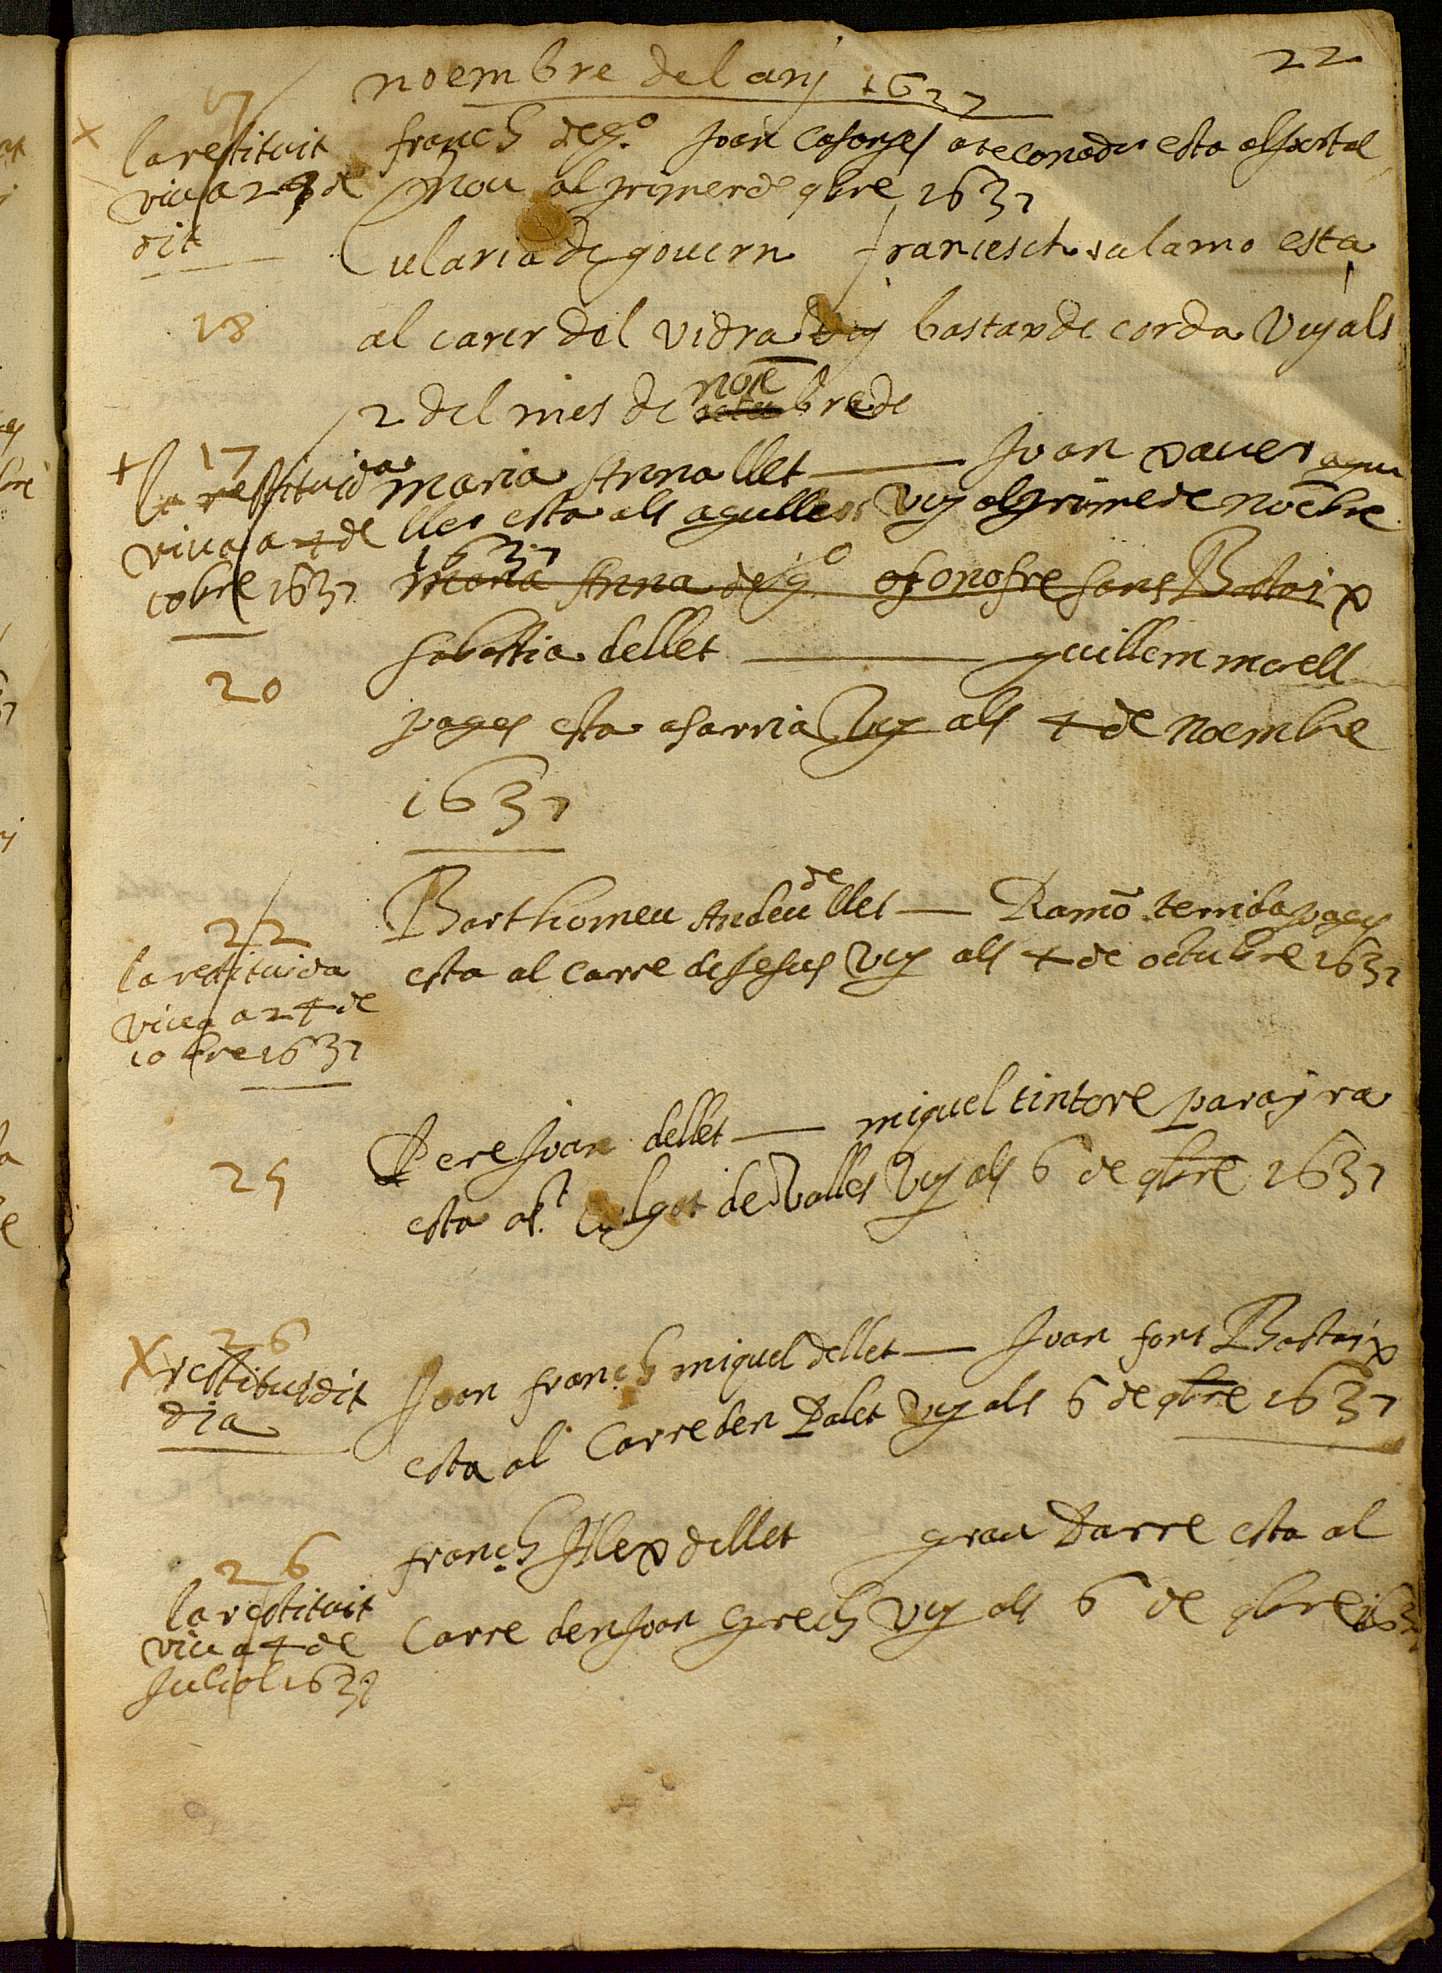 22
noembre del anÿ 1637
17
la restituit
viu a 24 de
dit
franch de g.º Joan casanyes ateconador esta al portal
nou al primer de 9bre 1637
Eularia de govern francesch salamo esta
18
al carer del vidra bastax de corda Vuy als
2 del mes de noēbre de
17
la restituida
viva a 4 de
10bre 1637
maria Anna llet — Joan paver agu
ller esta als agullers Vuy al primer de noēbre
1637
maria Anna de g.º onofre fons Bastaix
sabastia dellet — guillem morell
20
pages esta a sarria Vuy als 4 de noembre
1637
22
la restituida
viva a 24 de
10bre 1637
Barthomeu Andeu de llet — Ramō terrida pages
esta al carre de Jesus Vuy als 4 de octubre 1637
25
Pere Joan dellet — miquel tintore parayra
esta a s.t Culgat de Valles Vuy als 6 de 9bre 1637
26
restituit dit
dia
Joan franch miquel dellet — Joan fons Bastaix
esta al Carre den Palet Vuy als 6 de 9bre 1637
26
la restituit
viu a 4 de
Juliol 1638
franch Alex dellet grau Darre esta al
Carre den Joan Grech Vuy als 6 de 9bre 1637